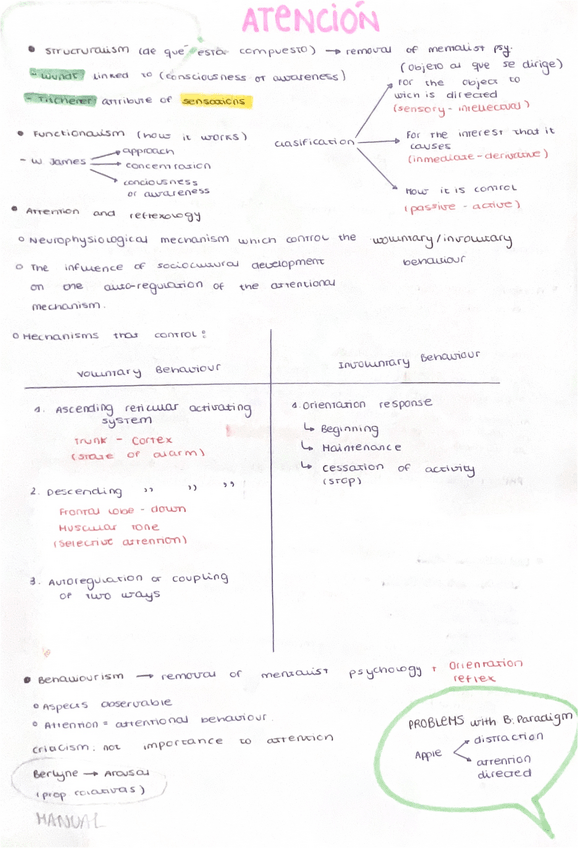 ATENCIÓN
• Structuralism (de qué está compuesto) → removal of mentalist psy.
- Wundt linked to (consciousness or awareness)
- Titchener attribute of sensations
(objeto al que se dirige)
clasification
For the object to
wich is directed
(sensory - intellectual)
For the interest that it
causes
(inmediate - derivative)
How it is control
(passive - active)
• Functionalism (how it works)
- W James
approach
concentration
conciousness
or awareness
• Attention and reflexology
○ Neurophysiological mechanism which control the voluntary/involuntary
behaviour
○ The influence of sociocultural development
on the auto-regulation of the attentional
mechanism.
○ Mechanisms that control:
Voluntary Behaviour
Involuntary Behaviour
1. Ascending reticular activating
system
Trunk - Cortex
(state of alarm)
2. Descending ,, ,, ,,
Frontal lobe - down
Muscular tone
(selective attention)
3. Autoregulation or coupling
of two ways
1. Orientation response
↳ Beginning
↳ Maintenance
↳ Cessation of activity
(stop)
• Behaviourism → removal of mentalist psychology + Orientation
reflex
○ Aspects observable
○ Attention = attentional behaviour.
criticism: not importance to attention
Berlyne → Arousal
(prop colativas)
MANUAL
PROBLEMS with B. Paradigm
Apple
distraction
attention
directed